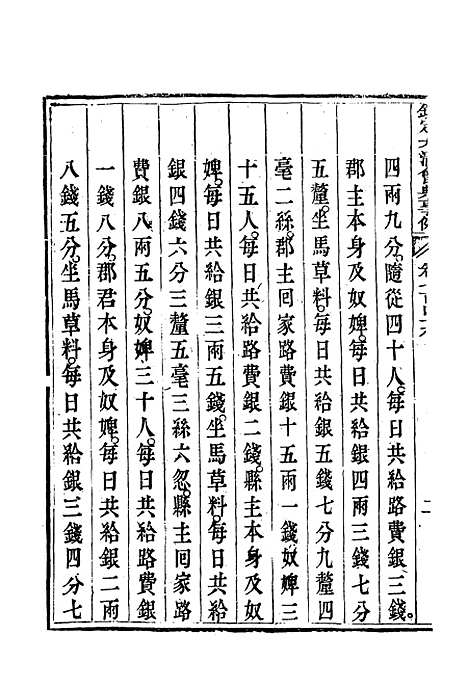 欽定大清會典事例
四兩九分。隨從四十人。每日共給路費銀三錢。
郡主本身及奴婢。每日共給銀四兩三錢七分
五釐。坐馬草料。每日共給銀五錢七分九釐四
毫二絲。郡主回家路費銀十五兩一錢。奴婢三
十五人。每日共給路費銀二錢。縣主本身及奴
婢。每日共給銀三兩五錢。坐馬草料。每日共給
銀四錢六分三釐五毫三絲六忽。縣主回家路
費銀八兩五分。奴婢三十人。每日共給路費銀
一錢八分。郡君本身及奴婢。每日共給銀二兩
八錢五分。坐馬草料。每日共給銀三錢四分七